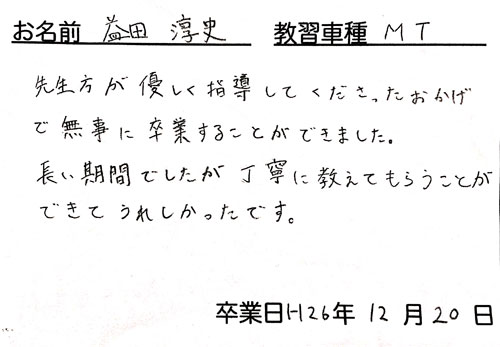 お名前 益田 淳史 教習車種 MT
先生方が優しく指導してくださったおかげ
で無事に卒業することができました。
長い期間でしたが丁寧に教えてもらうことが
できてうれしかったです。
卒業日H26年 12月20日